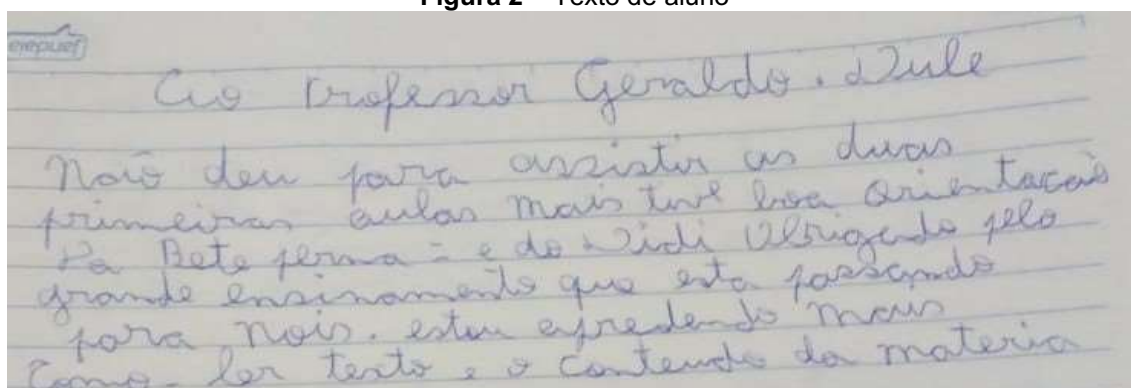 Figura 2 – Texto de aluno
Ao Professor Geraldo.
Naõ deu para assistir as duas
primeiras aulas mais tive boa orientacaõ
Da Bete e do Didi Obrigado pelo
grande ensinamento que esta passando
para nois. estou apredendo mais
Como ler texto e o Conteudo da materia